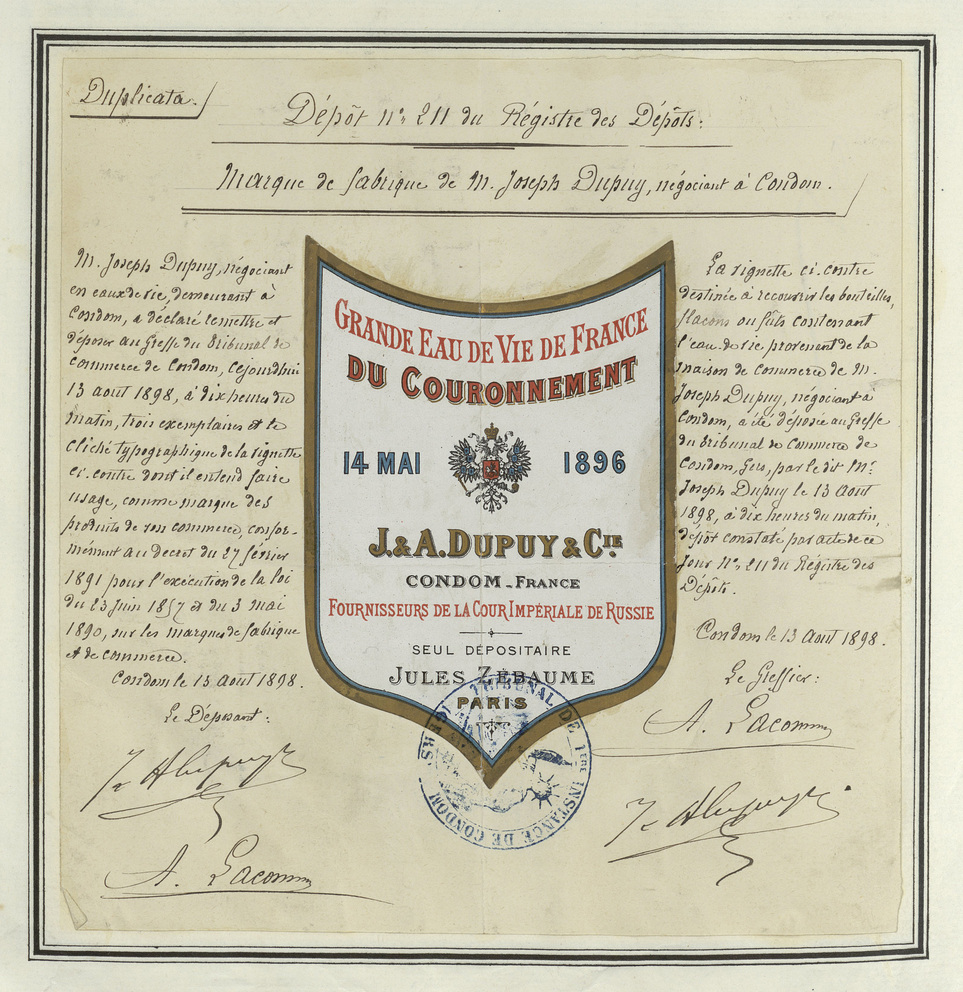 Duplicata.
Dépôt n° 211 du Régistre des Dépôts:
Marque de fabrique de M. Joseph Dupuy, négociant à Condom.
M. Joseph Dupuy, négociant
en eaux de vie, demeurant à
Condom, a déclaré remettre et
déposer au Greffe du Tribunal de
Commerce de Condom, cejourdhui
13 aout 1898, à dix heures du
matin, trois exemplaires et le
Cliché typographique de la vignette
ci-contre dont il entend faire
usage, comme marque des
produits de son commerce, confor-
mément au decret du 27 février
1891 pour l'exécution de la loi
du 23 Juin 1857 et du 3 mai
1890, sur les marques de fabrique
et de commerce.
Condom le 13 Août 1898.
Le Déposant:
A. Lacomm
GRANDE EAU DE VIE DE FRANCE
DU COURONNEMENT
14 MAI 1896
J. & A. DUPUY & CIE.
CONDOM - FRANCE
FOURNISSEURS DE LA COUR IMPÉRIALE DE RUSSIE
SEUL DÉPOSITAIRE
JULES ZÉBAUME
PARIS
TRIBUNAL DE 1ÈRE INSTANCE DE CONDOM (GERS)
La vignette ci-contre
destinée à recouvrir les bouteilles,
flacons ou fûts contenant
l'eau de vie provenant de la
maison de Commerce de M.
Joseph Dupuy, négociant à
Condom, a été déposée au Greffe
du Tribunal de Commerce de
Condom, Gers, par le dit Mr.
Joseph Dupuy le 13 Août
1898, à dix heures du matin,
dépôt constaté par acte de ce
Jour N°. 211 du Régistre des
Dépôts.
Condom le 13 Août 1898.
Le Greffier:
A. Lacomm